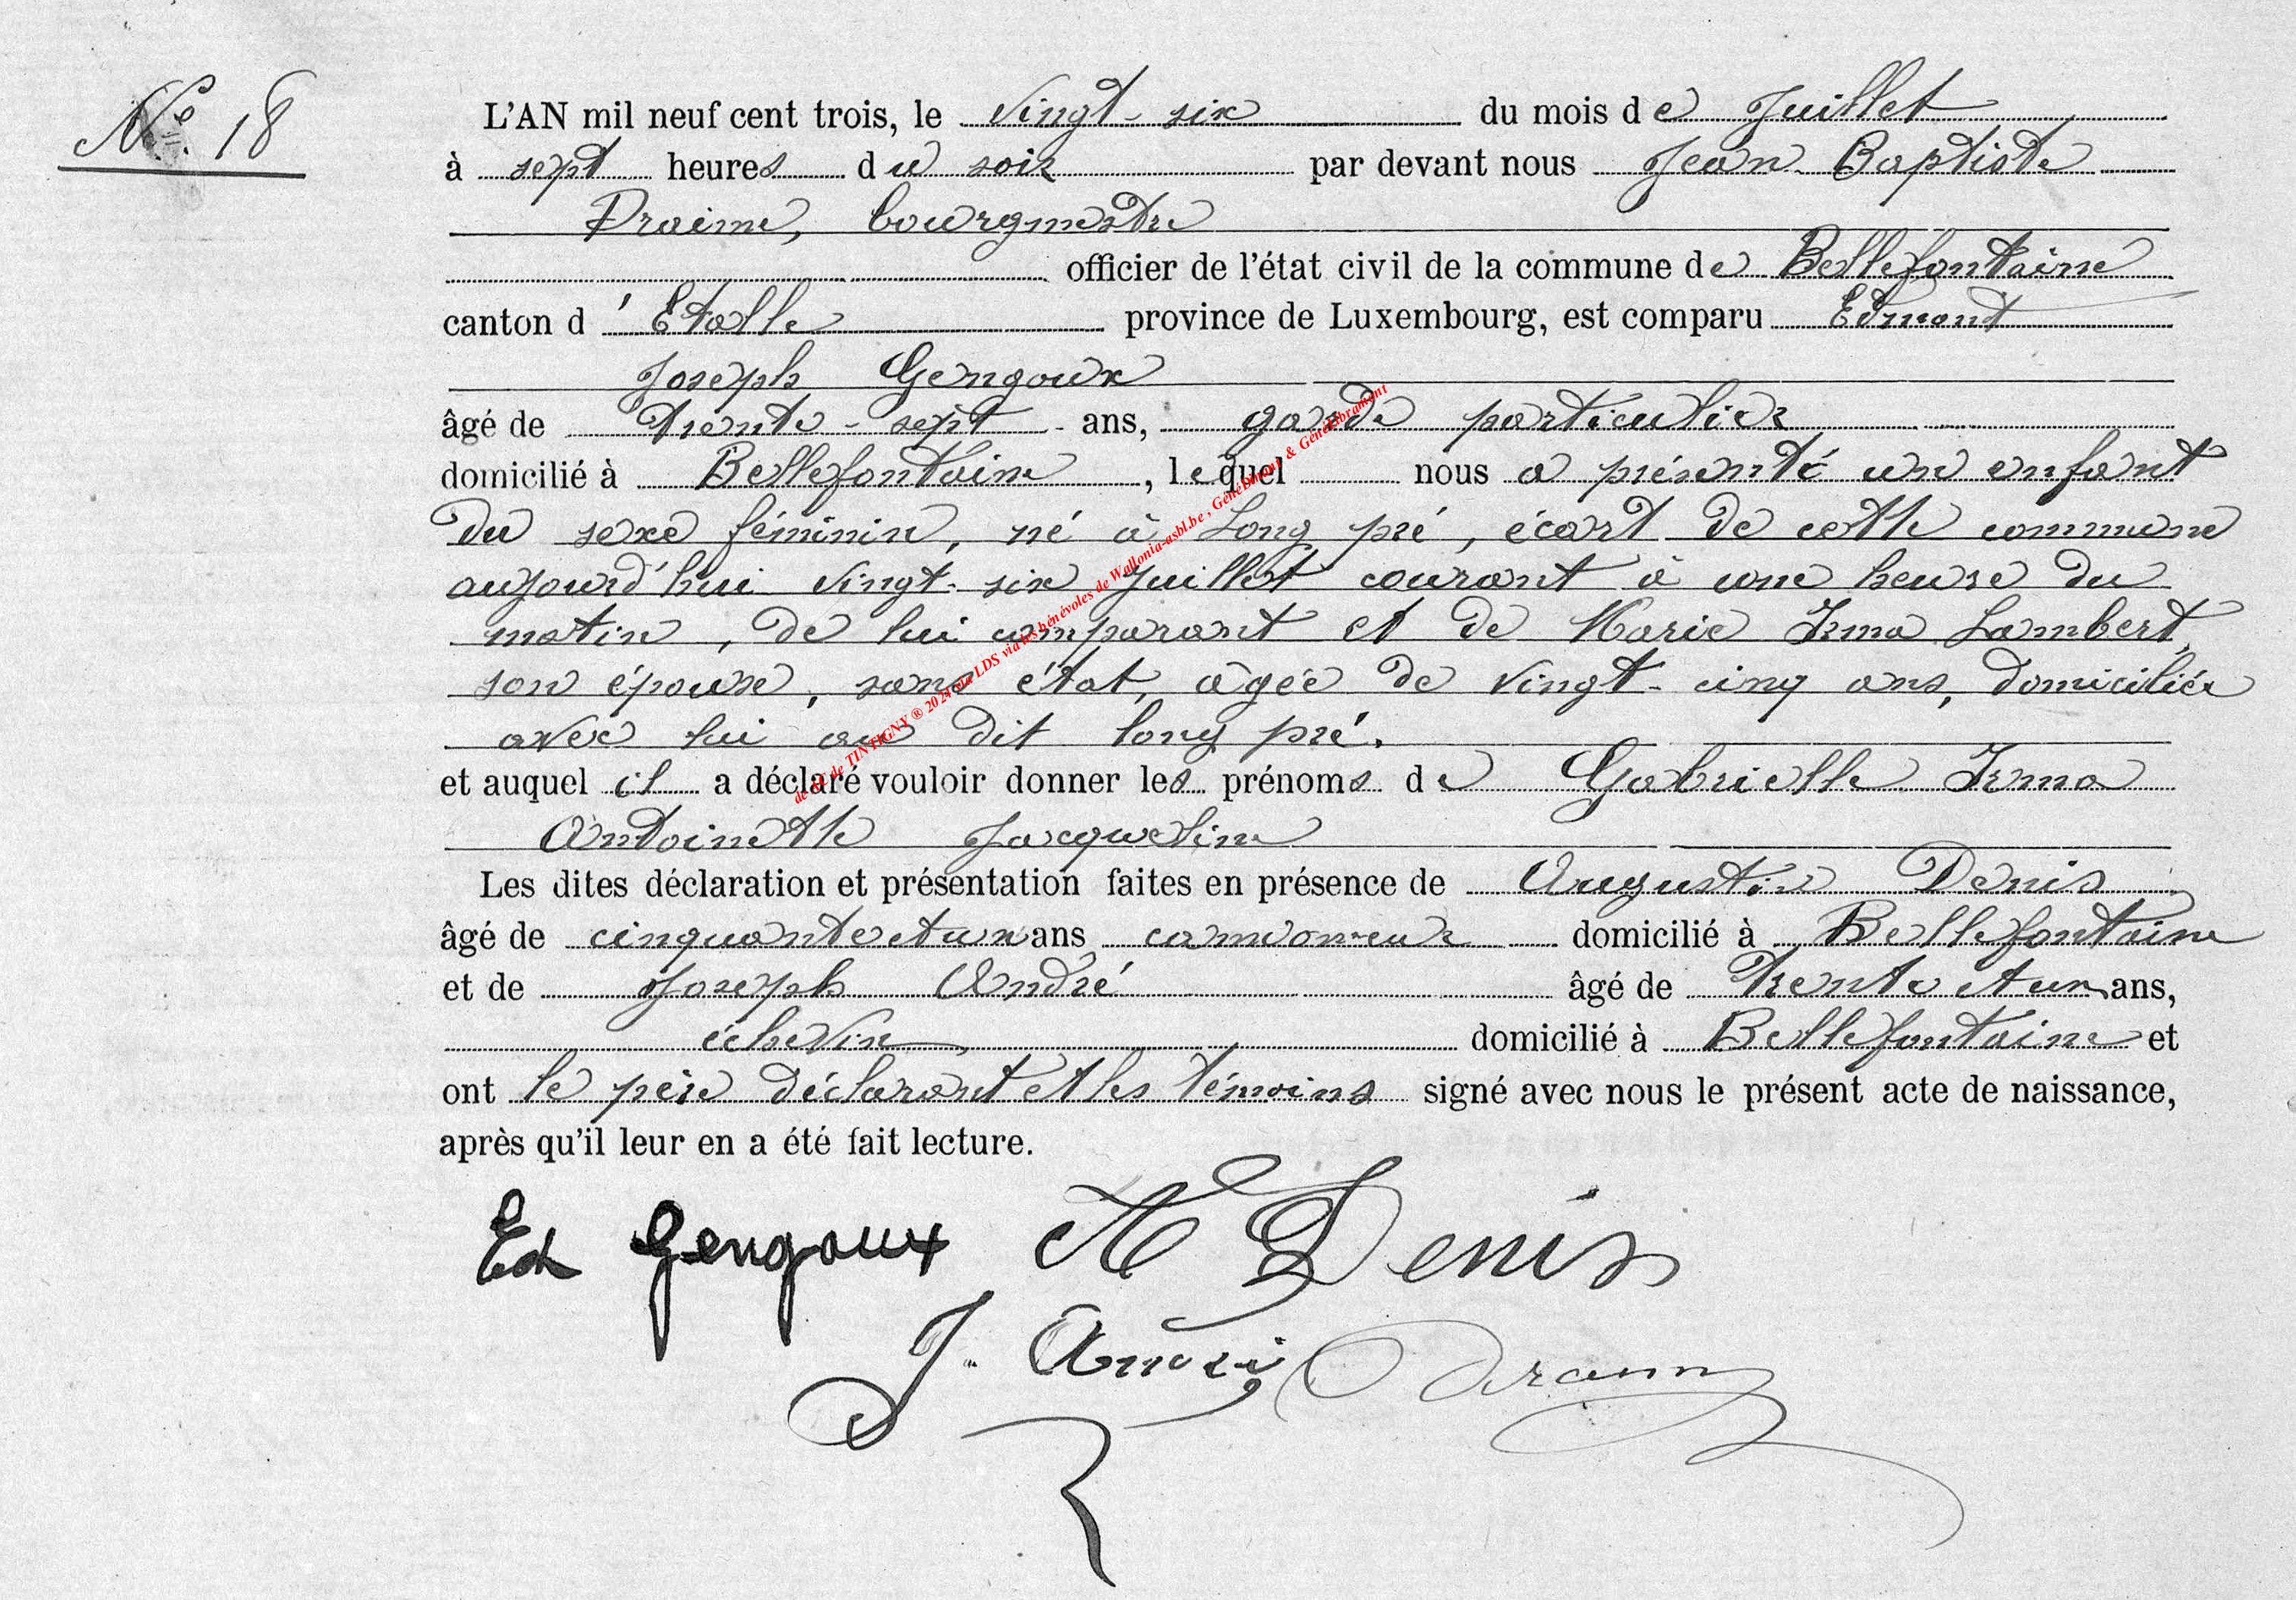 N° 18
L'AN mil neuf cent trois, le vingt-six du mois de Juillet
à sept heures du soir par devant nous Jean-Baptiste
Draime, bourgmestre
officier de l'état civil de la commune de Bellefontaine
canton d'Etalle province de Luxembourg, est comparu Edmond
Joseph Gengoux
âgé de trente-sept ans, garde particulier
domicilié à Bellefontaine, lequel nous a présenté un enfant
du sexe féminin, né à Long pré, écart de cette commune
aujourd'hui vingt-six Juillet courant à une heure du
matin, de lui comparant et de Marie Irma Lambert,
son épouse, sans état, agée de vingt-cinq ans, domiciliée
avec lui au dit long pré.
et auquel il a déclaré vouloir donner les prénoms de Gabrielle Irma
Antoinette Jacqueline
Les dites déclaration et présentation faites en présence de Augustin Denis
âgé de cinquante et un ans domicilié à Bellefontaine
et de Joseph André âgé de trente et un ans,
échevin domicilié à Bellefontaine et
ont le père déclarant et les témoins signé avec nous le présent acte de naissance,
après qu'il leur en a été fait lecture.
Ed Gengoux A Denis
J. André
de AC de TINTIGNY ® 2024 via LDS via les bénévoles de Wallonia-asbl.be, Génébinage & Généalbramont